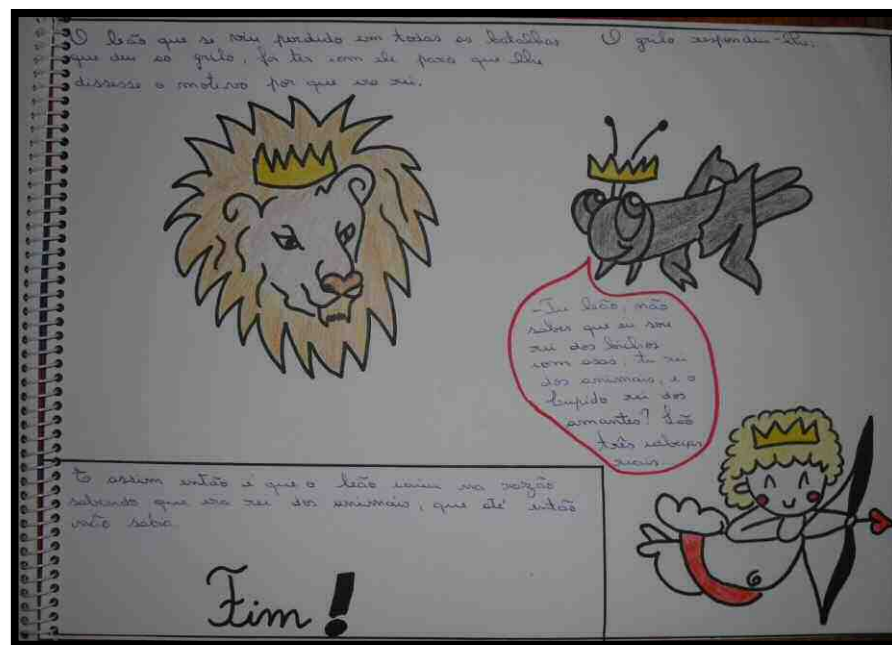 O leão que se viu perdido em todas as batalhas
que deu ao grilo, foi ter com ele para que lhe
dissesse o motivo por que era rei.
O grilo respondeu-lhe:
-Tu leão, não
sabes que eu sou
rei dos bichos
com asas, tu rei
dos animais, e o
Cupido rei dos
amantes? São
três cabeças
reais.
E assim então é que o leão caiu na razão
sabendo que era rei dos animais, que até então
não sabia.
Fim!